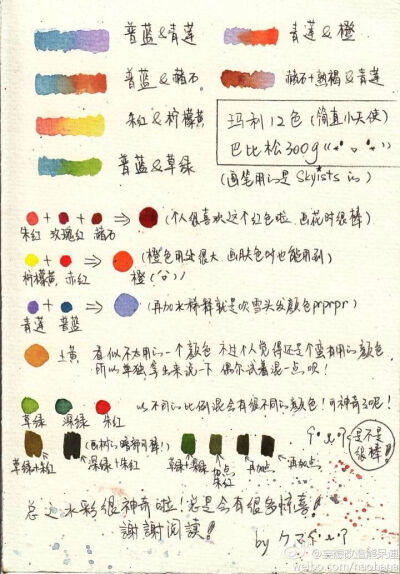 普蓝&青莲
青莲&橙
普蓝&赭石
赭石+熟褐&青莲
朱红&柠檬黄
普蓝&草绿
玛利12色(简直小天使)
巴比松300g
(画笔用的是Skyists的)
(个人很喜欢这个红色啦 画花时很棒)
朱红 玫瑰红 赭石
(橙色用处很大 画肤色时也能用到)
柠檬黄 赤红 橙
(再加水稀释就是吹雪头发颜色prprpr)
青莲 普蓝
土黄 看似不太用的一个颜色 不过个人觉得还是个蛮有用的颜色,
所以单独拿出来说一下 偶尔试着混一点呗!
以不同的比例混会有很不同的颜色!可神奇了呢!
草绿 深绿 朱红
是不是很棒!
(画树的暗部可棒!)
草绿+朱红 深绿+朱红 草绿+深绿 加点朱红 再加点 再加点
总之水彩很神奇啦!总是会有很多惊喜!
謝謝阅读!
by クマ
weibo.com/naohana